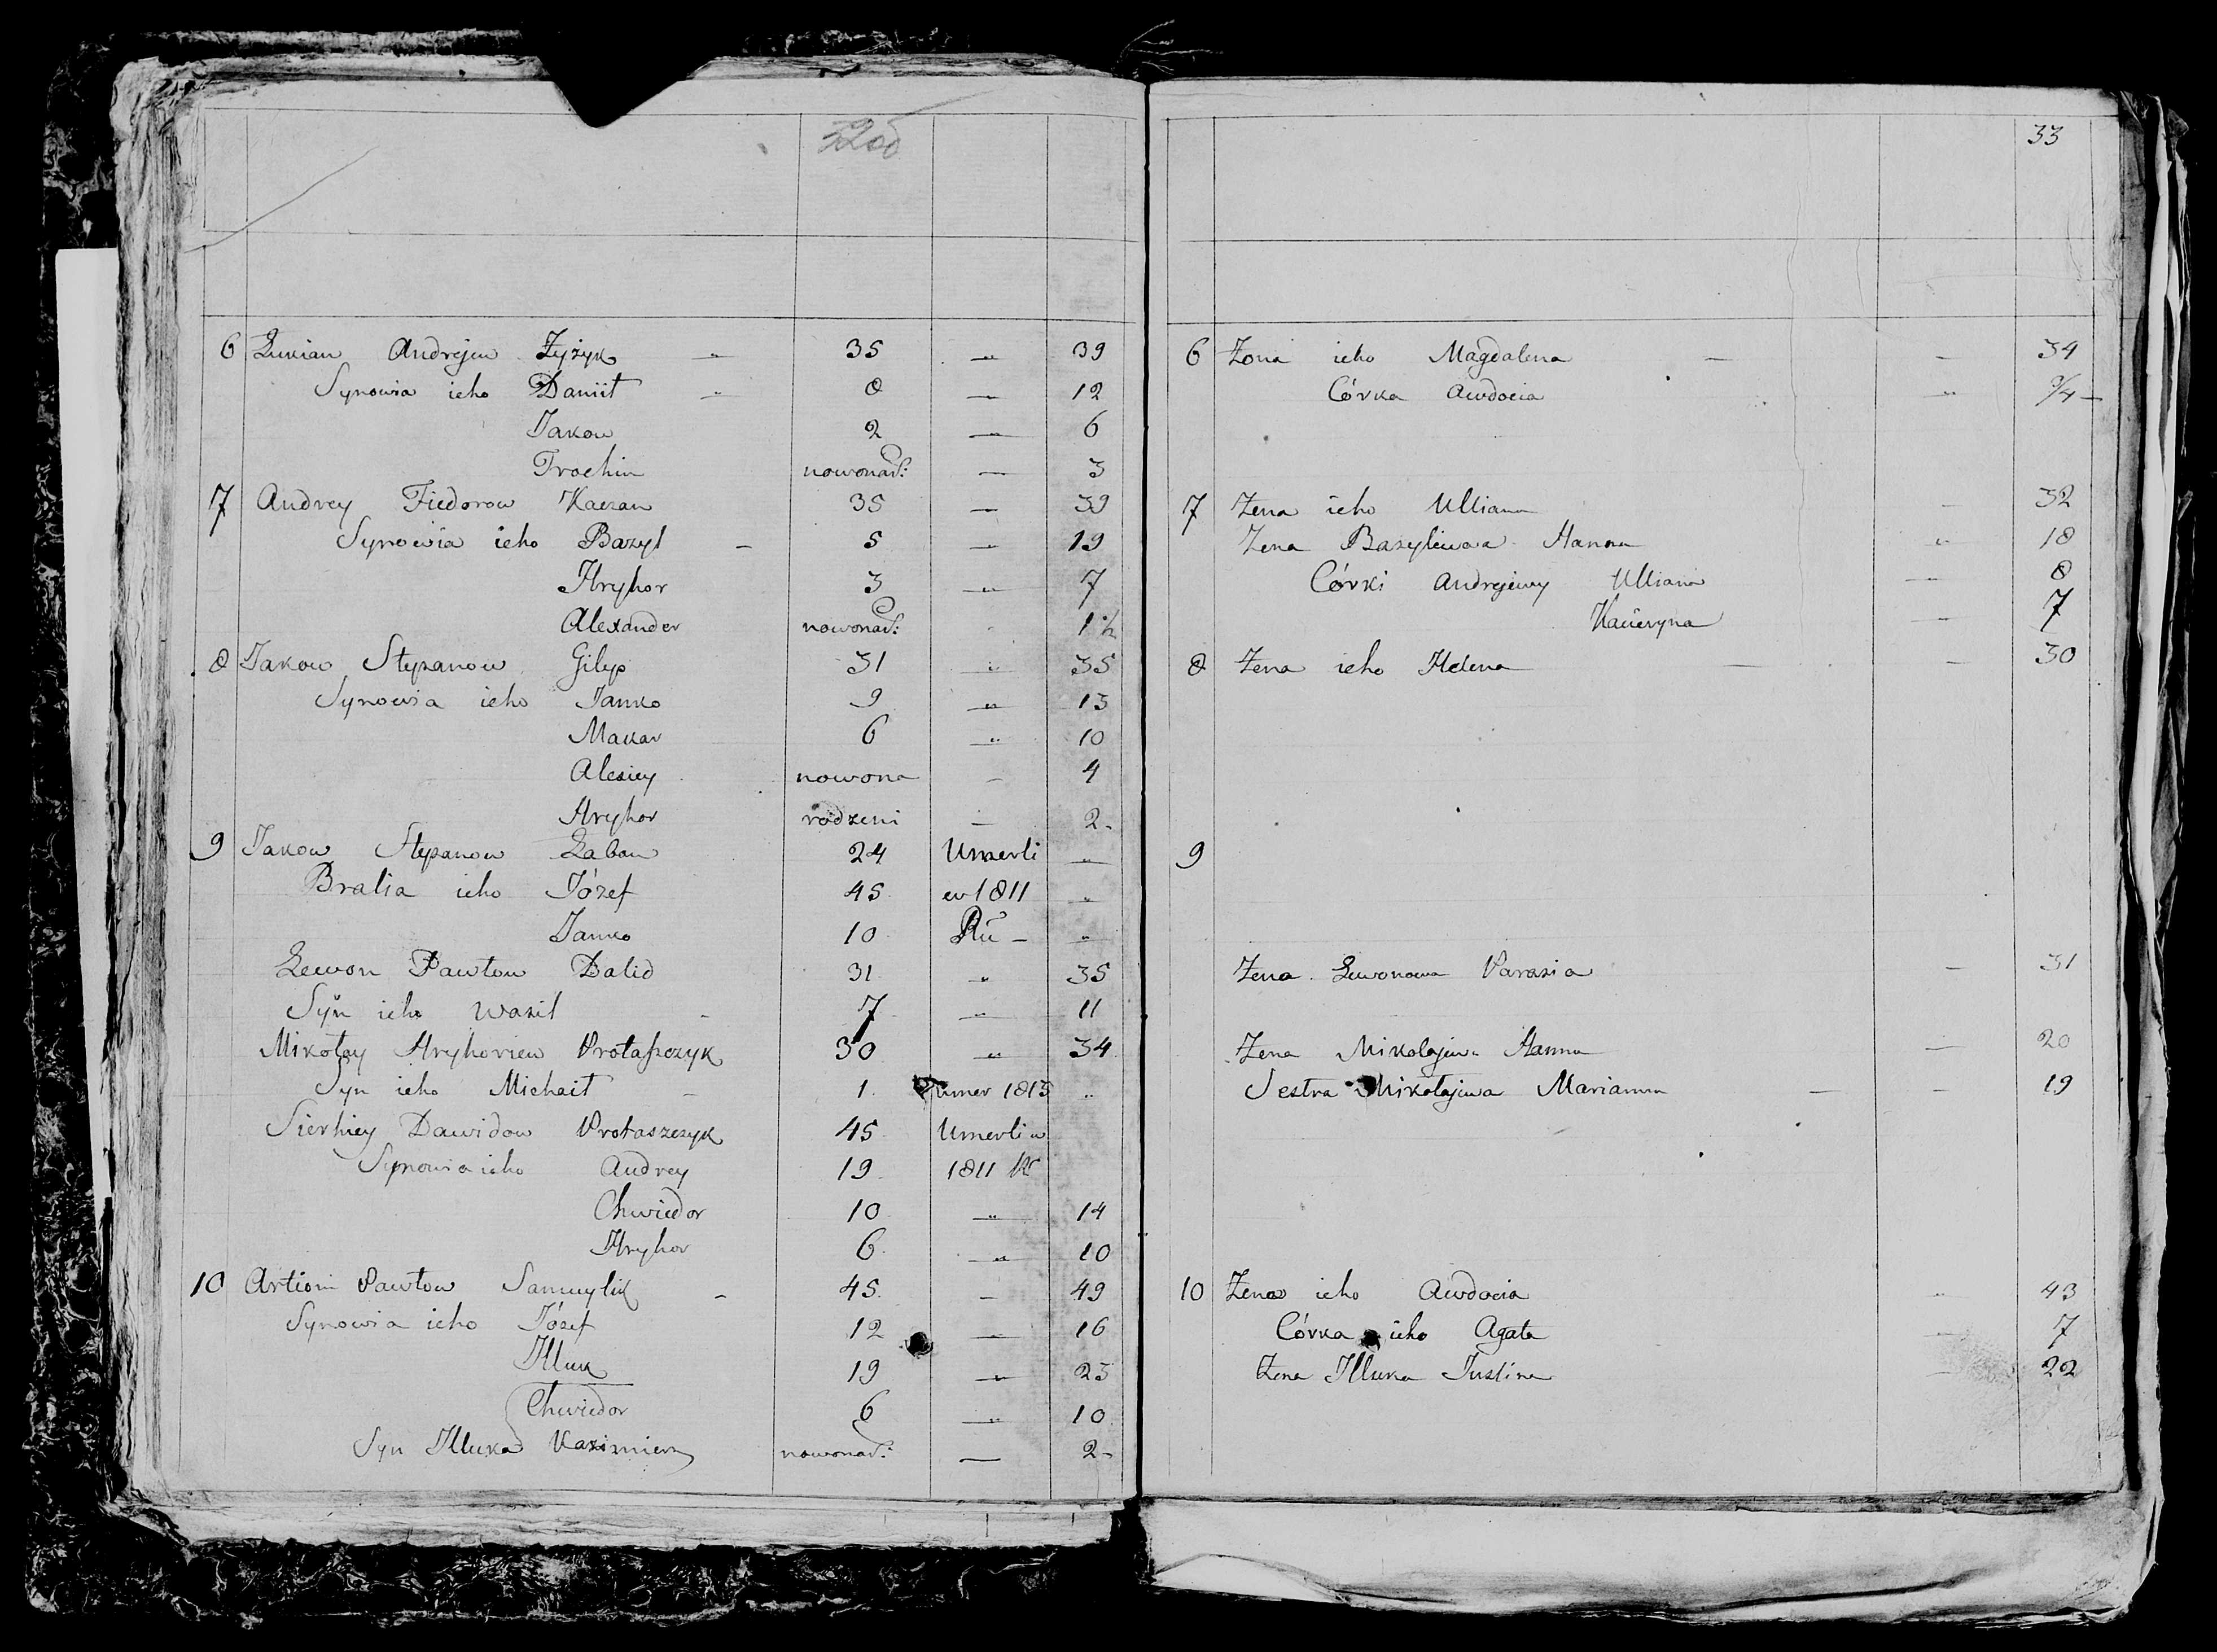 32об
6 Lukian Andrejew Zyżyk " 35 " 39
Synowia ieho Daniił " 8 " 12
Jakow 2 " 6
Trochim nowonad: — 3
7 Andrey Fiedorow Kaczan 35 — 39
Synowia ieho Bazyl — 5 " 19
Hryhor 3 " 7
Alexander nowonad: 1 1/2
8 Jakow Stepanow Gilep 31 " 35
Synowia ieho Janko 9 " 13
Makar 6 " 10
Alexiey nowona — 4
Hryhor rodzeni — 2
9 Jakow Stepanow Laban 24 Umerli "
Bratia ieho Józef 45 w 1811 "
Janko 10 Ru — "
Lewon Pawłow Dalid 31 " 35
Syn ieho Wasil — 7 " 11
Mikołay Hryhoriew Protaszczyk 30 " 34
Syn ieho Michaił — 1 umer 1813 "
Sierhiey Dawidow Protaszczyk 45 Umerli w
Synowia ieho Andrey 19 1811 R
Chwiedor 10 " 14
Hryhor 6 " 10
10 Artiom Pawłow Samuylik — 45 — 49
Synowia ieho Józef 12 — 16
Illuk 19 " 23
Chwiedor 6 " 10
Syn Illuka Kazimierz nowonad: — 2
33
6 Żona ieho Magdalena — — 34
Córka Awdocia " 3/4
7 Żena ieho Ulliana — 32
Żena Bazyliewa Hanna " 18
Córki Andrejewy Ulliana — 8
Kacieryna — 7
8 Żena ieho Helena — — 30
9
Żena Lewonowa Parasia — 31
Żena Mikołajewa Hanna — 20
Sestra Mikołajewa Marianna — — 19
10 Żena ieho Awdocia " 43
Córka ieho Agata — 7
Żena Illuka Justina — 22